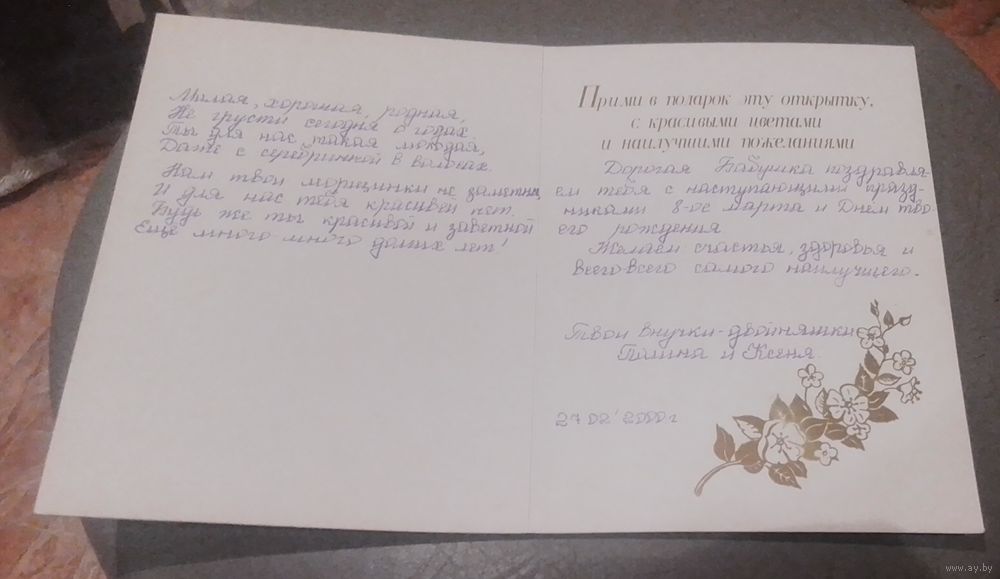 Милая, хорошая, родная,
Не грусти сегодня о годах.
Ты для нас такая молодая,
Даже с серебринкой в волосах.
Нам твои морщинки не заметны,
И для нас тебя красивей нет.
Будь же ты красивой и заветной
Еще много-много долгих лет!
Прими в подарок эту открытку,
с красивыми цветами
и наилучшими пожеланиями
Дорогая Бабушка поздравля-
ем тебя с наступающими празд-
никами 8-ое марта и Днем тво-
его рождения
Желаем счастья, здоровья и
всего-всего самого наилучшего.
Твои внучки-двойняшки
Полина и Ксеня.
27 02 2000 г
www.ay.by